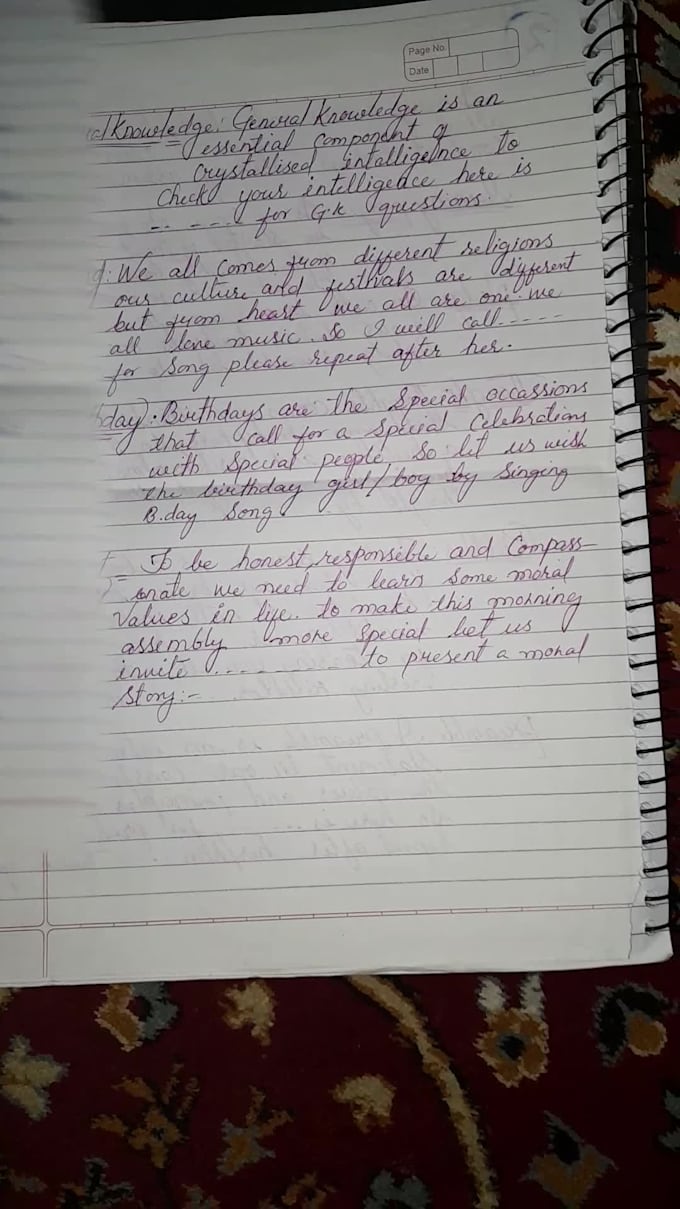 Page No.
Date
al Knowledge: General Knowledge is an
essential component of
crystallised intalligelnce to
Check your intelligence here is
-- ---- for G.K questions.
: We all comes from different religions
our culture and festivals are different
but from heart we all are one. we
all love music. So I will call.----
for song please repeat after her.
day): Birthdays are the Special occassions
that call for a special Celebrations
with Special people So let us wish
the birthday girl/boy by Singing
B.day Song
= To be honest, responsible and Compass-
onate we need to learn Some moral
Values in life. to make this morning
assembly more Special let us
invite ---------- to present a moral
Story:-